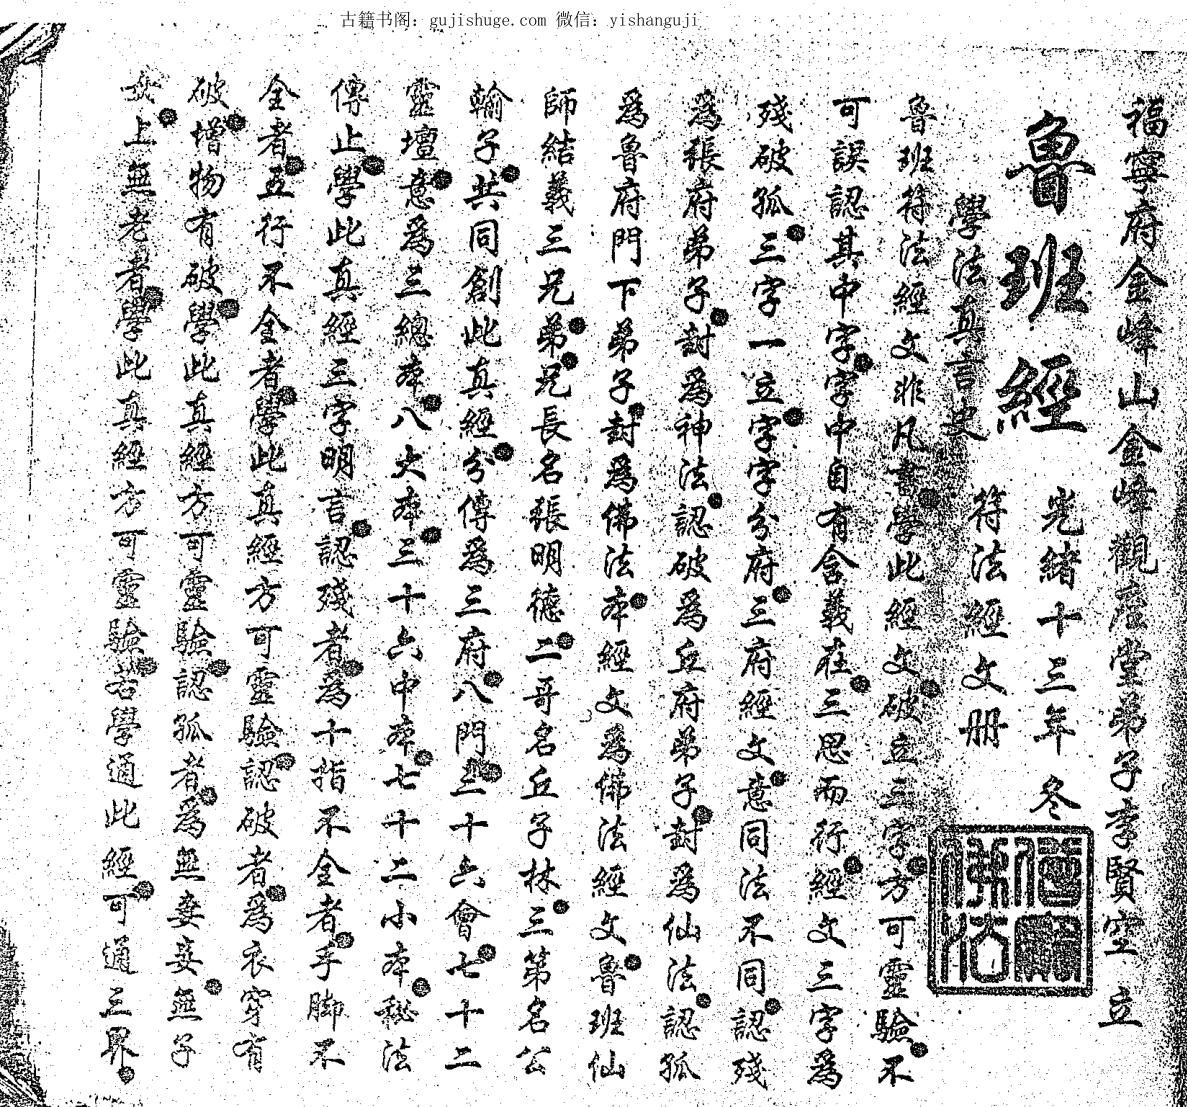 古籍书阁：gujishuge.com 微信：yishanguji
福寧府金峰山金峰觀座堂弟子李賢空 立
魯班經 光緒十三年冬
學法真言史 符法經文册
魯班符法經文非凡書學此經文破立三字方可靈驗不
可誤認其中字字中自有含義在三思而行經文三字為
殘破孤三字一立字字分府三府經文意同法不同認殘
為張府弟子封為神法認破為丘府弟子封為仙法認孤
為魯府門下弟子封為佛法本經文為佛法經文魯班仙
師結義三兄弟兄長名張明德二哥名丘子林三第名公
輸子共同創此真經分傳為三府八門三十六會七十二
靈壇意為三總本八大本三十六中本七十二小本秘法
傳止學此真經三字明言認殘者為十指不全者手脚不
全者五行不全者學此真經方可靈驗認破者為衣穿有
破增物有破學此真經方可靈驗認孤者為無妻妾無子
女上無老者學此真經方可靈驗若學通此經可通三界